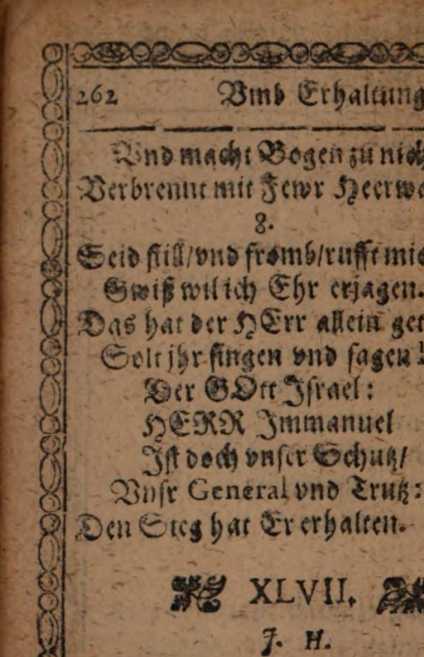 262 Vmb Erhaltung
Vnd macht Bogen zu nich
Verbrennt mit Fewr Heerwa
8.
Seid still/vnd fromb/rufft mic
Gwiß wil ich Ehr erjagen.
Das hat der HErr allein get
Solt jhr singen vnd sagen!
Der GOtt Israel:
HERR Immanuel
Ist doch vnser Schutz/
Vnsr General vnd Trutz:
Den Sieg hat Er erhalten.
XLVII.
J. H.